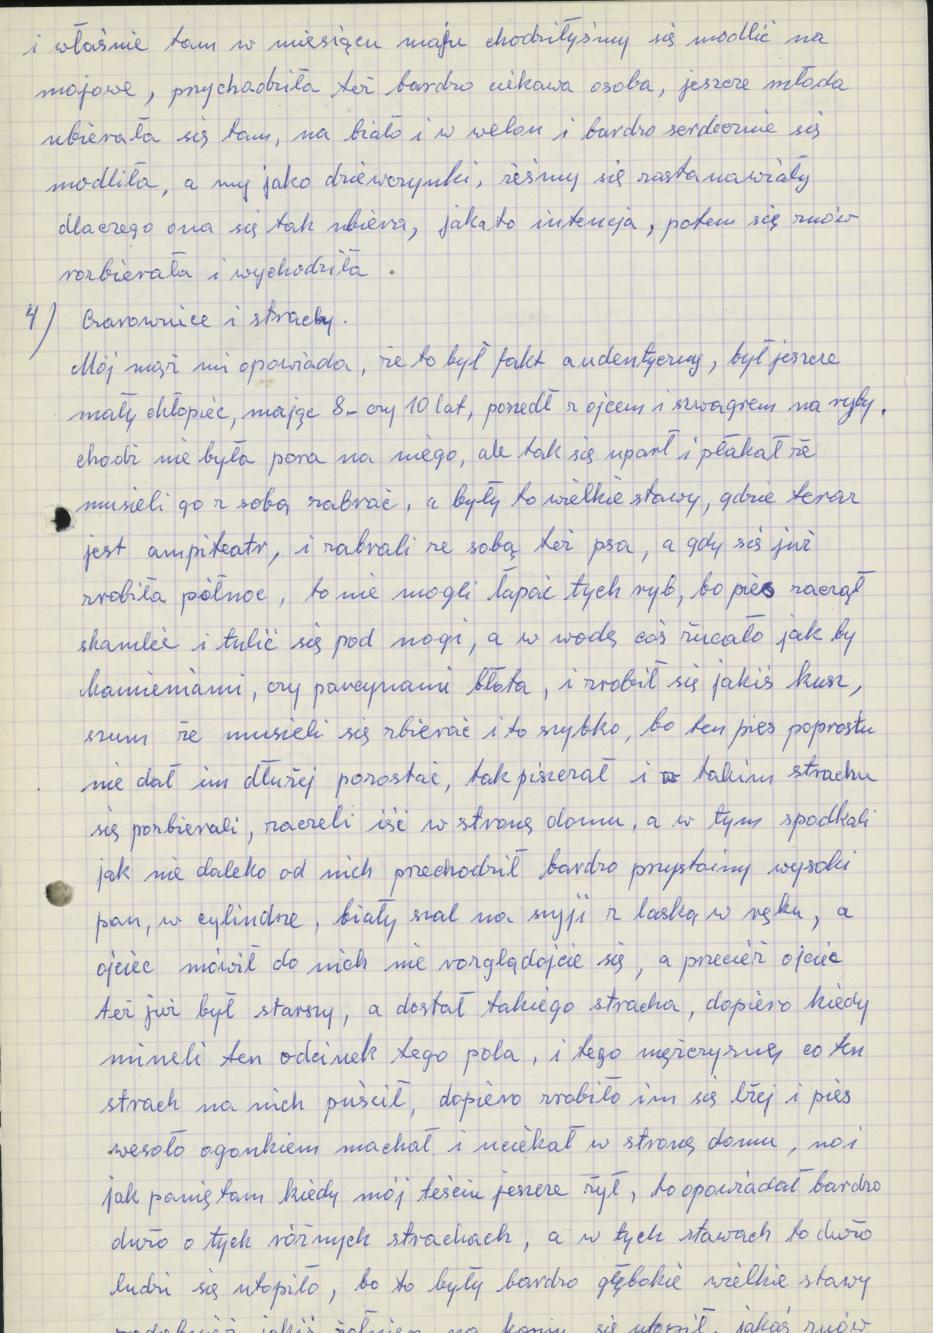 i właśnie tam w miesiącu maju chodziłyśmy się modlić na
majowe, przychodziła też bardzo ciekawa osoba, jeszcze młoda
ubierała się tam, na biało i w welon i bardzo serdecznie się
modliła, a my jako dziewczynki, żeśmy się zastanawiały
dlaczego ona się tak ubiera, jaka to intencja, potem się znów
rozbierała i wychodziła.
4) Czarownice i strachy.
Mój mąż mi opowiada, że to był fakt audentyczny, był jeszcze
mały chłopiec, mając 8- czy 10 lat, poszedł z ojcem i szwagrem na ryby,
chodź nie była pora na niego, ale tak się uparł i płakał że
musieli go z sobą zabrać, a były to wielkie stawy, gdzie teraz
jest ampiteatr, i zabrali ze sobą też psa, a gdy się już
zrobiła północ, to nie mogli łapać tych ryb, bo pies zaczął
skamleć i tulić się pod nogi, a w wodę coś rzucało jak by
kamieniami, czy parcynami błota, i zrobił się jakiś kurz,
szum że musieli się zbierać i to szybko, bo ten pies poprostu
nie dał im dłużej pozostać, tak piszczał i w takim strachu
się pozbierali, zaczeli iść w stronę domu, a w tym spodkali
jak nie daleko od nich przechodził bardzo przystojny wysoki
pan, w cylindrze, biały szal na szyji z laską w ręku, a
ojciec mówił do nich nie rozglądajcie się, a przecież ojciec
też już był starszy, a dostał takiego stracha, dopiero kiedy
mineli ten odcinek tego pola, i tego mężczyznę co ten
strach na nich puścił, dopiero zrobiło im się lżej i pies
wesoło ogonkiem machał i uciekał w stronę domu, no i
jak pamiętam kiedy mój teściu jeszcze żył, to opowiadał bardzo
dużo o tych różnych strachach, a w tych stawach to dużo
ludzi się utopiło, bo to były bardzo głębokie wielkie stawy
jakiś żołnierz na koniu się utopił, jakaś znów